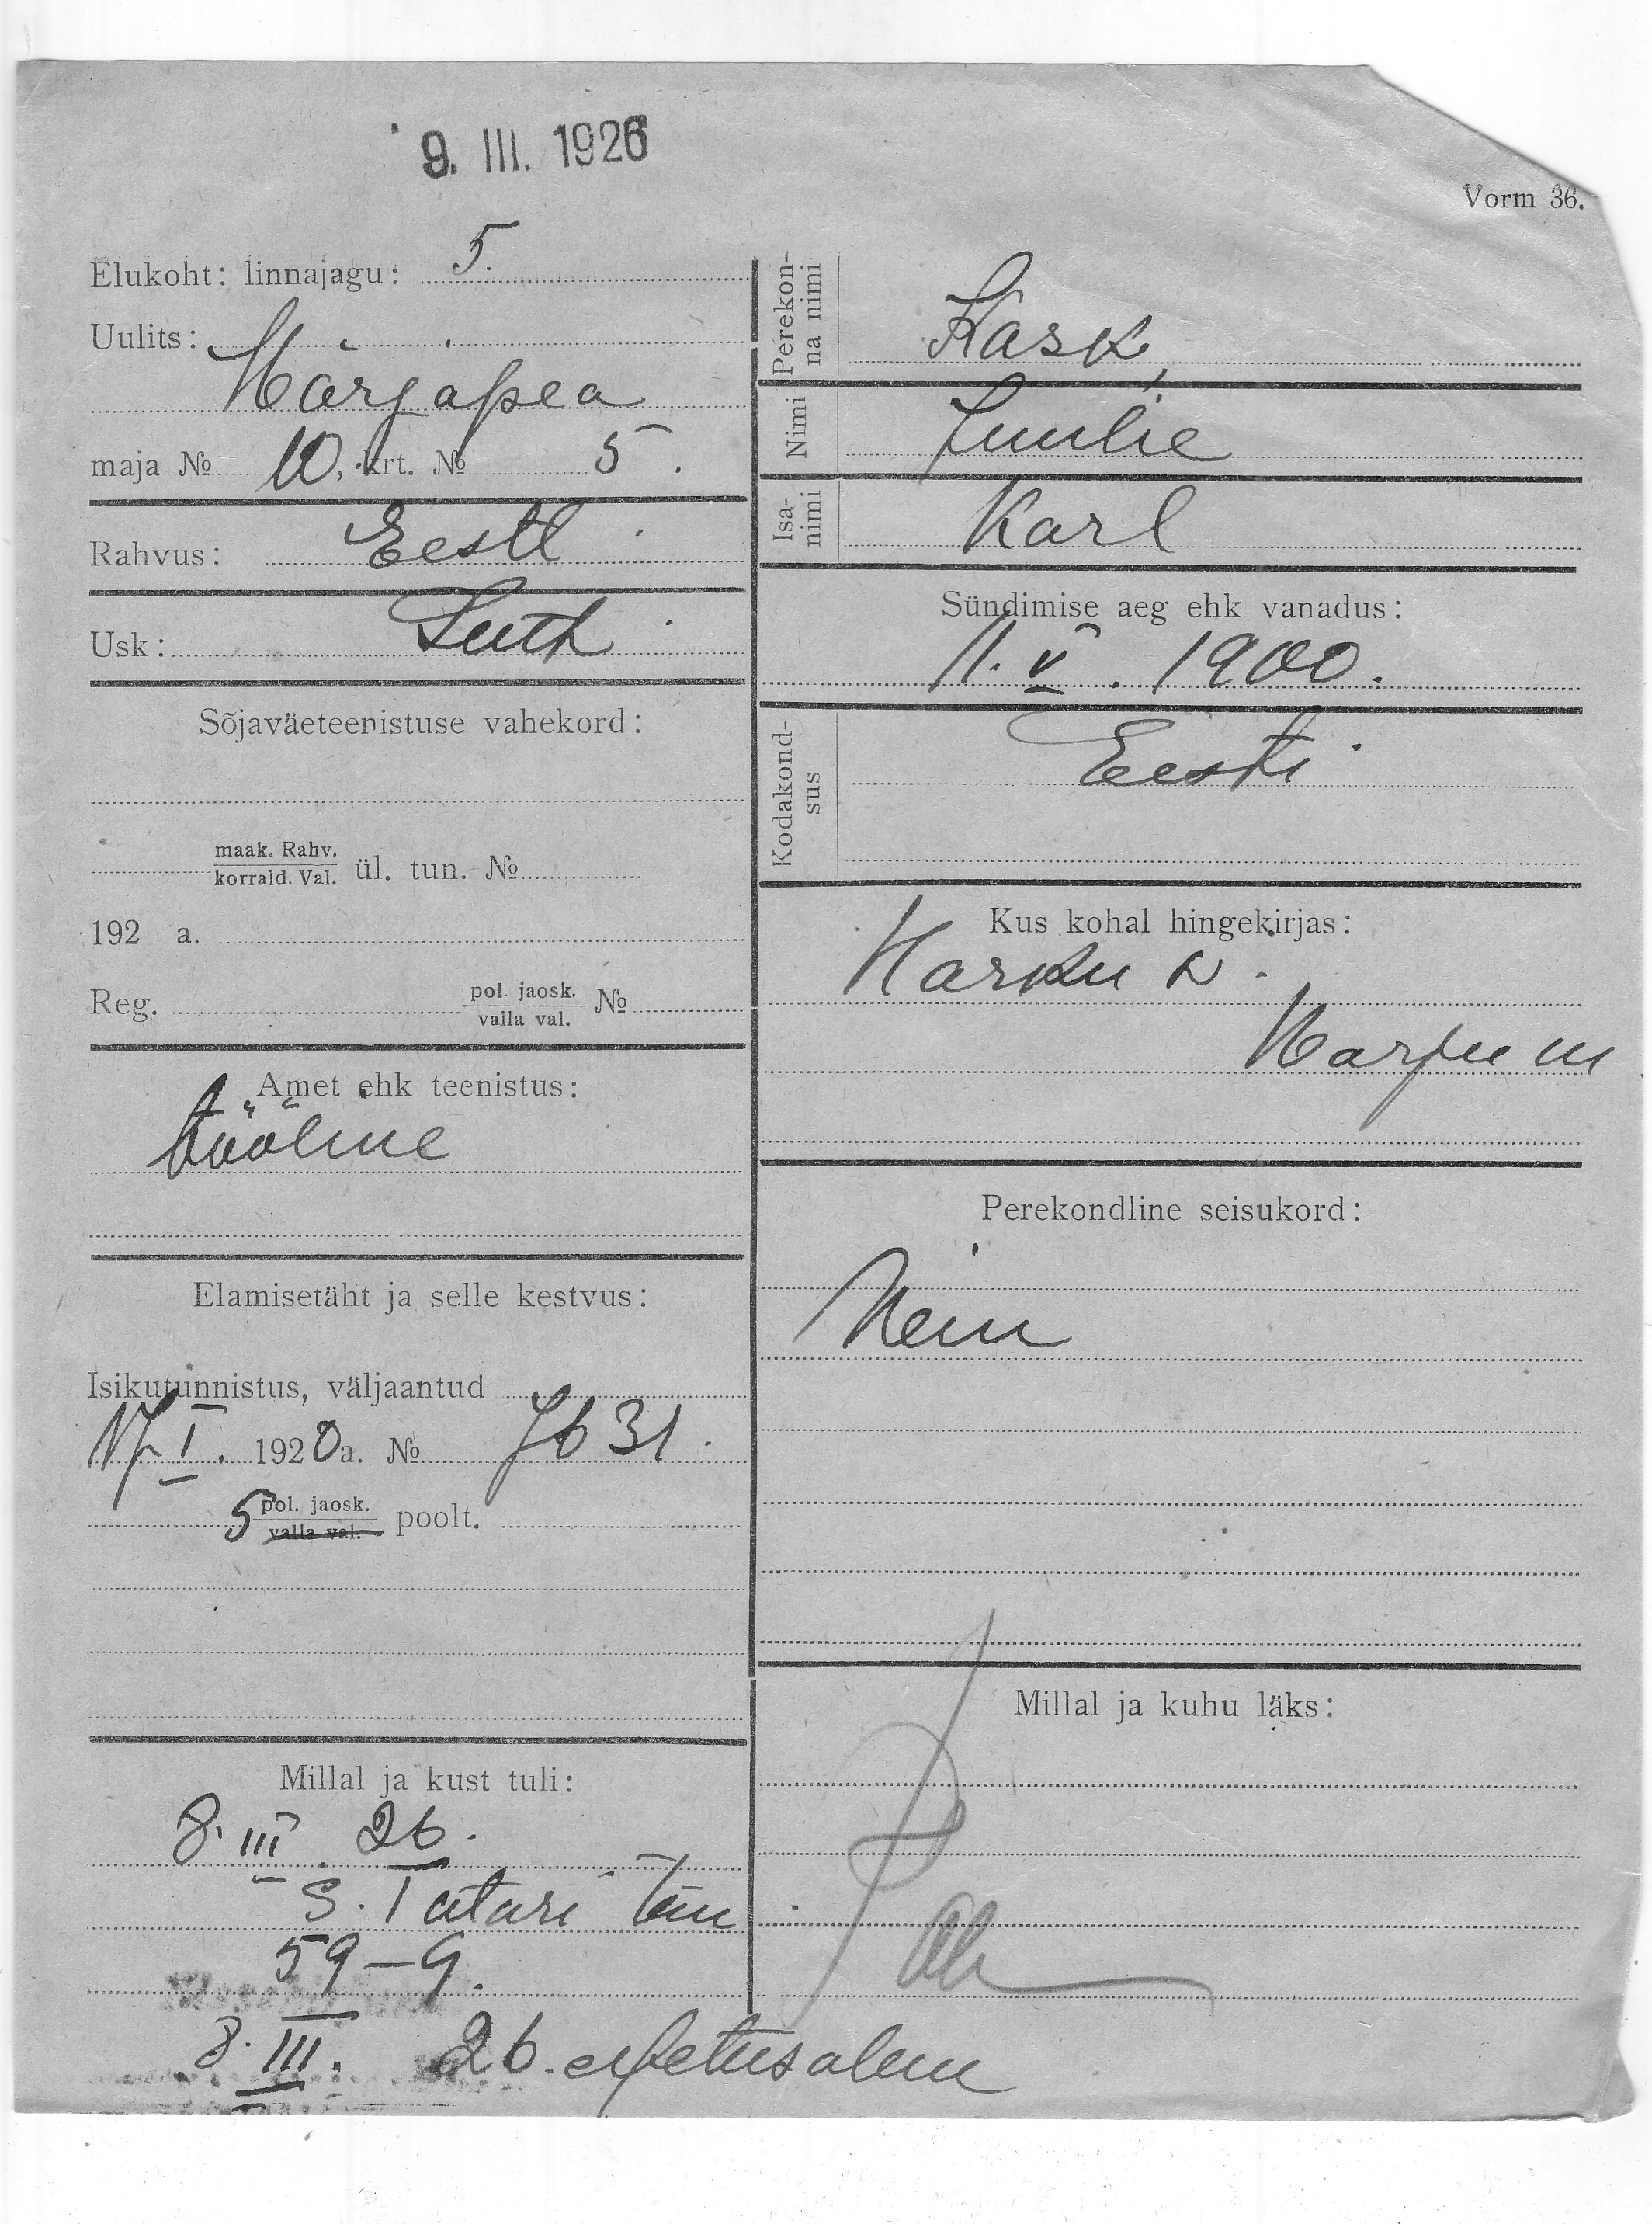 9. III. 1926
Vorm 36.
Elukoht: linnajagu: 5.
Uulits:
Härjapea
maja № 10, krt. № 5.
Rahvus: Eesti
Usk: Luth
Sõjaväeteenistuse vahekord:
maak. Rahv.
korrald. Val. ül. tun. №
192 a.
Reg. pol. jaosk. №
valla val.
Amet ehk teenistus:
tööline
Elamisetäht ja selle kestvus:
Isikutunnistus, väljaantud
17. I. 1920 a. № 7631.
5 pol. jaosk. poolt.
valla val.
Millal ja kust tuli:
8. III. 26.
S. Tatari tän
59-9.
8. III. 26.
Perekonna nimi
Kask,
Nimi
Juulie
Isanimi
Karl
Sündimise aeg ehk vanadus:
11. V. 1900.
Kodakondsus
Eesti
Kus kohal hingekirjas:
Harku v.
Harju m
Perekondline seisukord:
Millal ja kuhu läks: